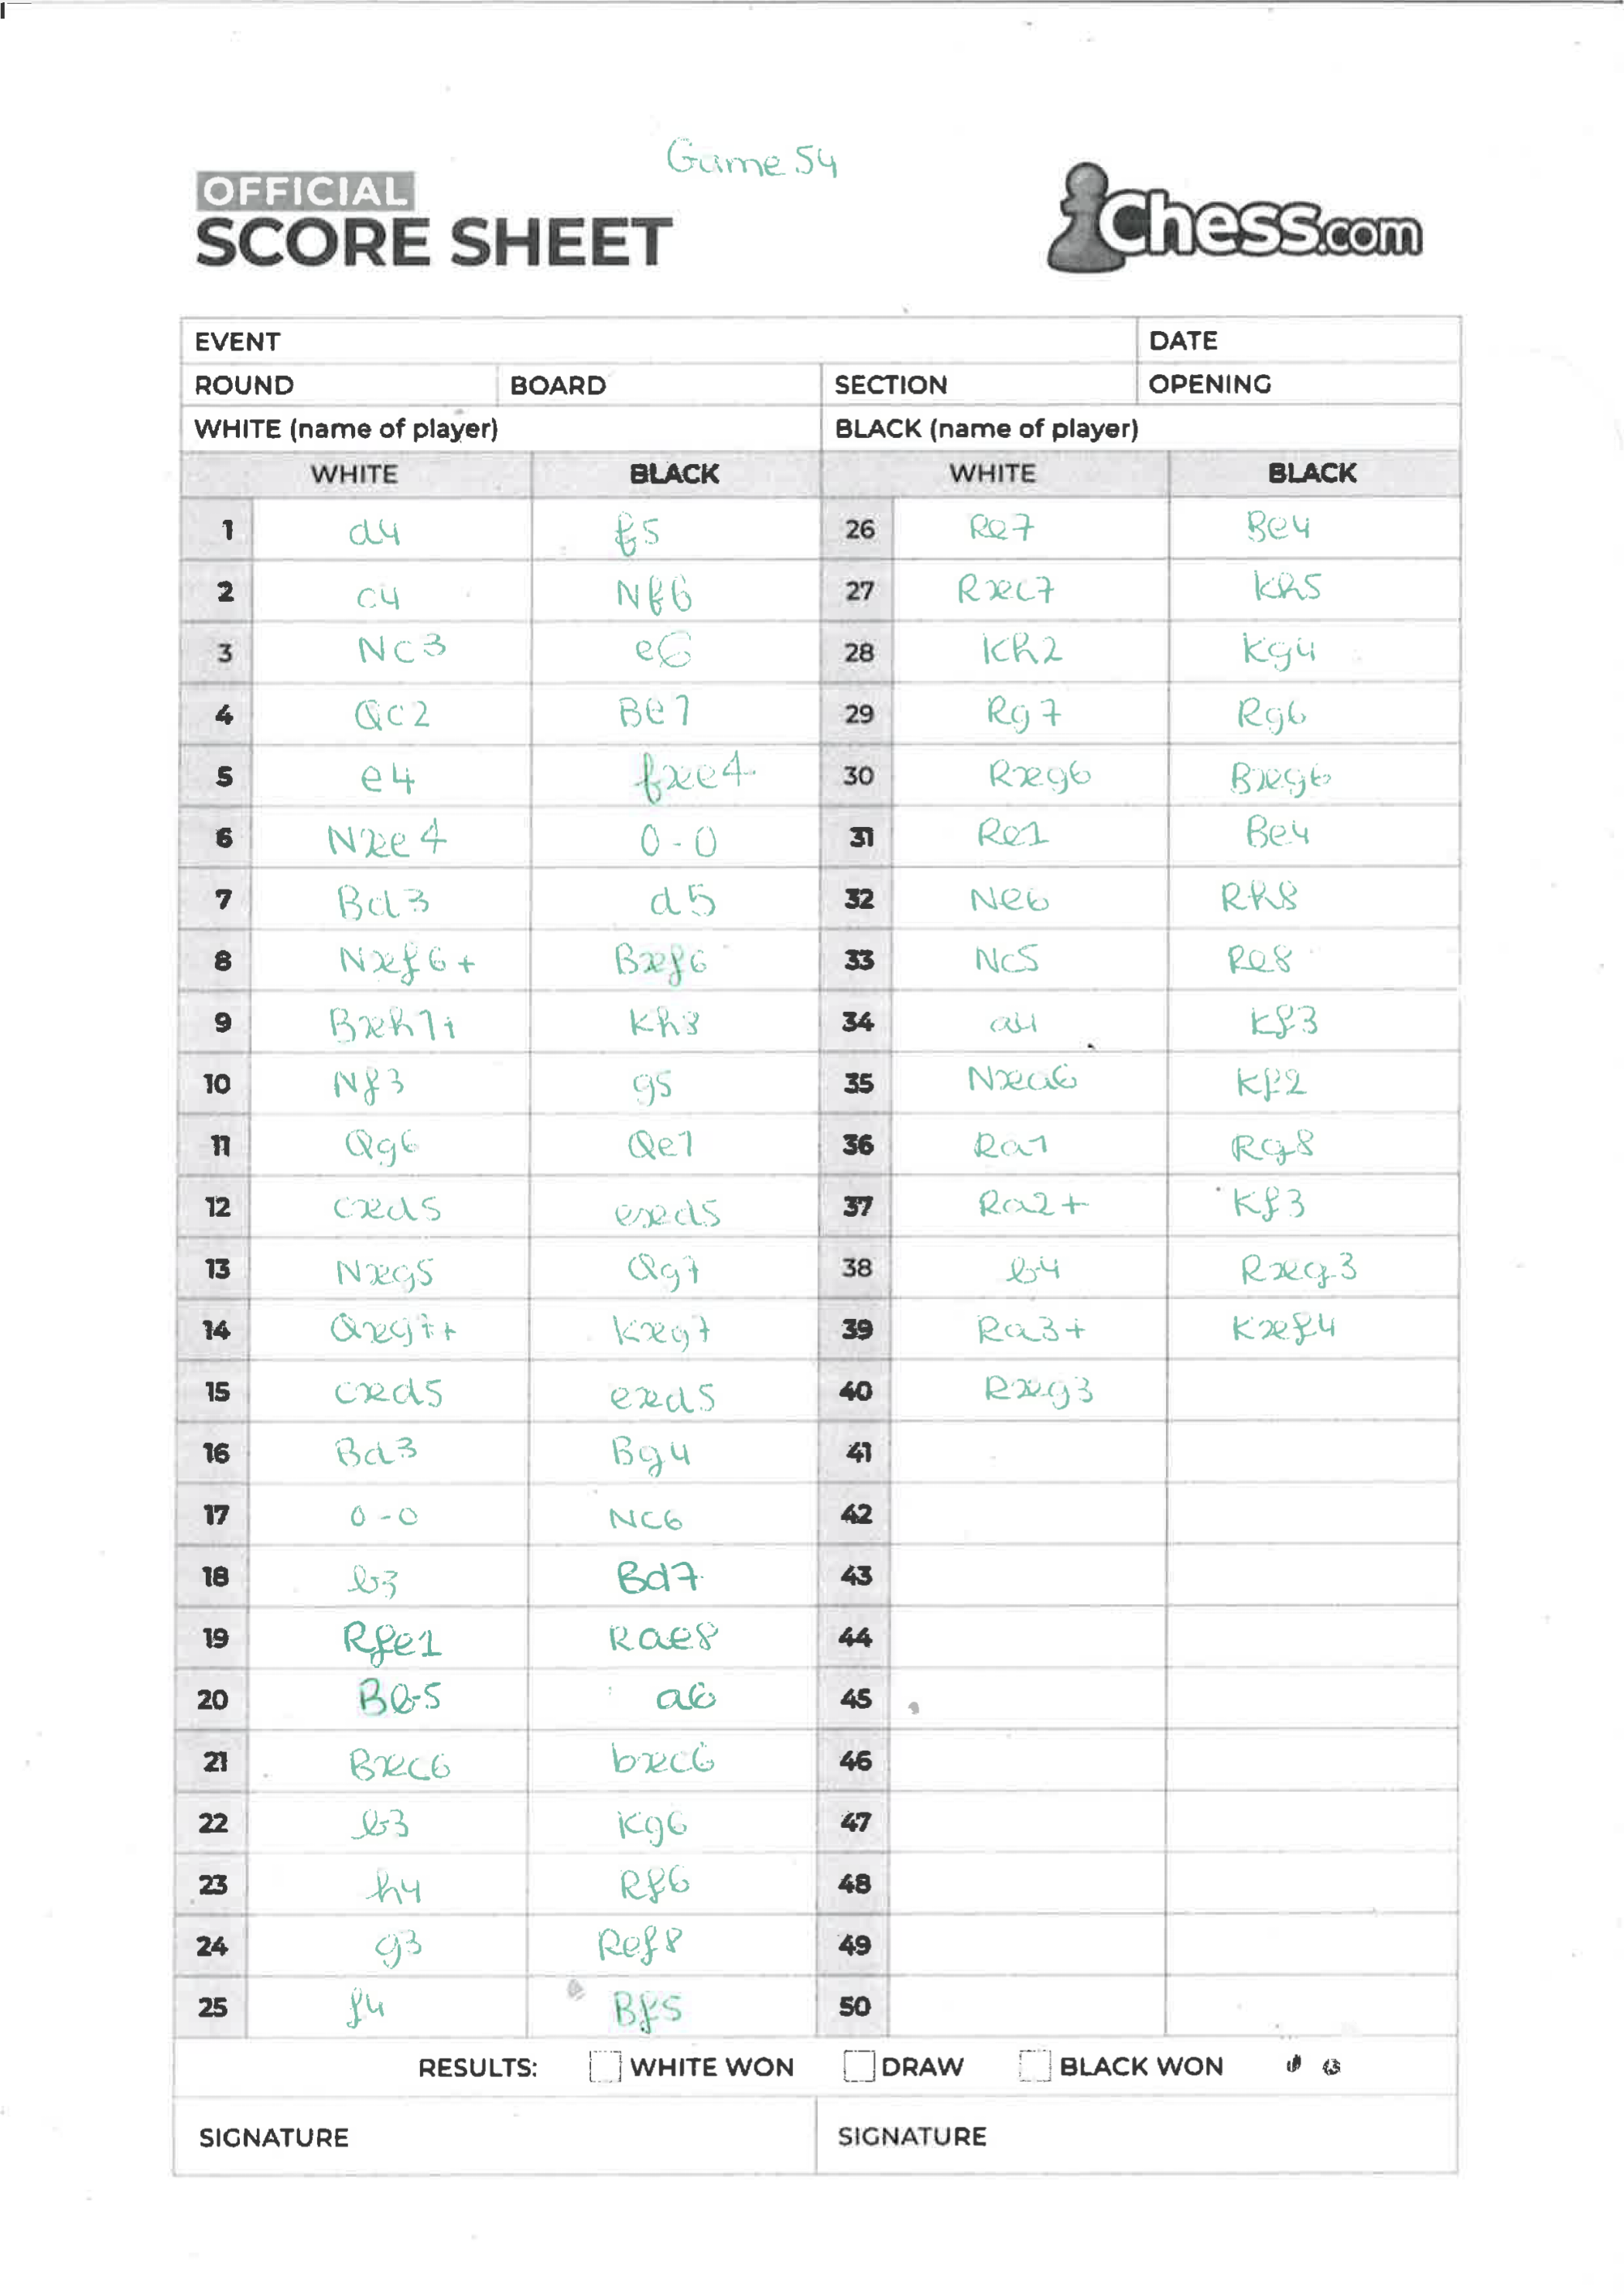 Game 54
OFFICIAL
SCORE SHEET
Chess.com
EVENT DATE
ROUND BOARD SECTION OPENING
WHITE (name of player) BLACK (name of player)
WHITE BLACK WHITE BLACK
1 d4 f5 26 Re7 Be4
2 c4 Nf6 27 Rxc7 Kh5
3 Nc3 e6 28 Kh2 Kg4
4 Qc2 Be7 29 Rg7 Rg6
5 e4 fxe4 30 Rxg6 Bxg6
6 Nxe4 0-0 31 Re1 Be4
7 Bd3 d5 32 Ne6 Rh8
8 Nxf6+ Bxf6 33 Nc5 Re8
9 Bxh7+ Kh8 34 a4 Kf3
10 Nf3 g5 35 Nxa6 Kf2
11 Qg6 Qe7 36 Ra1 Rg8
12 cxd5 exd5 37 Ra2+ Kf3
13 Nxg5 Qg7 38 b4 Rxg3
14 Qxg7+ Kxg7 39 Ra3+ Kxf4
15 cxd5 exd5 40 Rxg3
16 Bd3 Bg4 41
17 0-0 Nc6 42
18 b3 Bd7 43
19 Rfe1 Rae8 44
20 Bb5 a6 45
21 Bxc6 bxc6 46
22 b3 Kg6 47
23 h4 Rf6 48
24 g3 Ref8 49
25 f4 Bf5 50
RESULTS: WHITE WON DRAW BLACK WON
SIGNATURE SIGNATURE